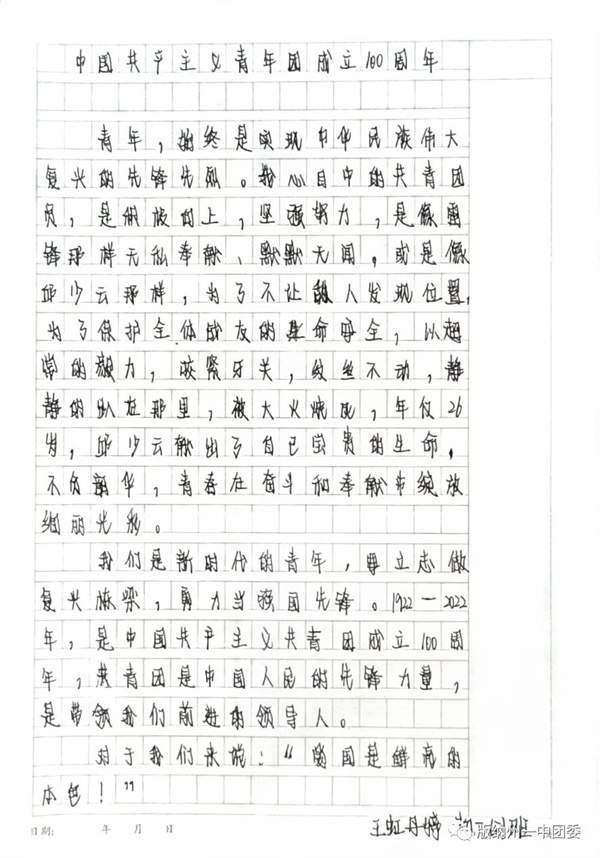 中国共产主义青年团成立100周年
青年，始终是实现中华民族伟大
复兴的先锋先烈。我心目中的共青团
员，是积极向上，坚强努力，是像雷
锋那样无私奉献、默默无闻。或是像
邱少云那样，为了不让敌人发现位置，
为了保护全体战友的生命安全，以超
常的毅力，咬紧牙关，纹丝不动，静
静的趴在那里，被大火烧死，年仅26
岁，邱少云献出了自己宝贵的生命。
不负韶华，青春在奋斗和奉献中绽放
绚丽光彩。
我们是新时代的青年，要立志做
复兴栋梁，勇力当强国先锋。1922—2022
年，是中国共产主义共青团成立100周
年，共青团是中国人民的先锋力量，
是带领我们前进的领导人。
对于我们来说：“爱国是鲜亮的
本色！”
日期: 年 月 日
王虹丹婷 班
版纳州一中团委